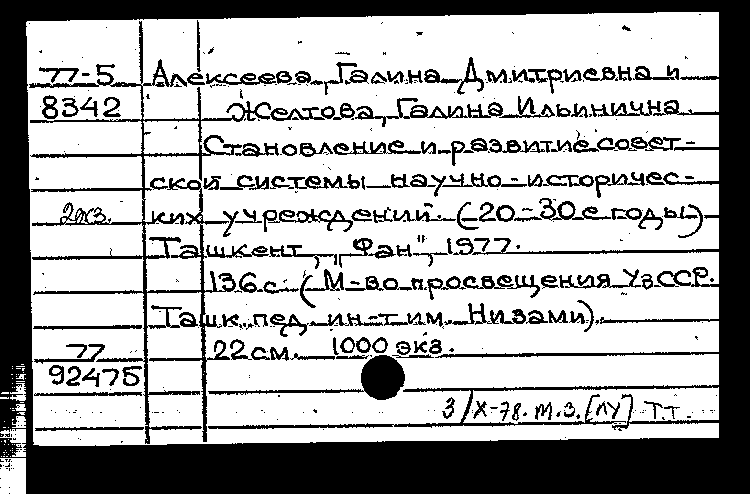 77-5 Алексеева, Галина Дмитриевна и
8342 Желтова, Галина Ильинична.
Становление и развитие совет-
ской системы научно-историчес-
2экз. ких учреждений. (20-30е годы)
Ташкент, „Фан", 1977.
136с. (М-во просвещения УзССР.
Ташк. пед. ин-т им. Низами).
77 22см. 1000 экз.
92475
3/X-78. М.З. [ЛУ] Т.Т.